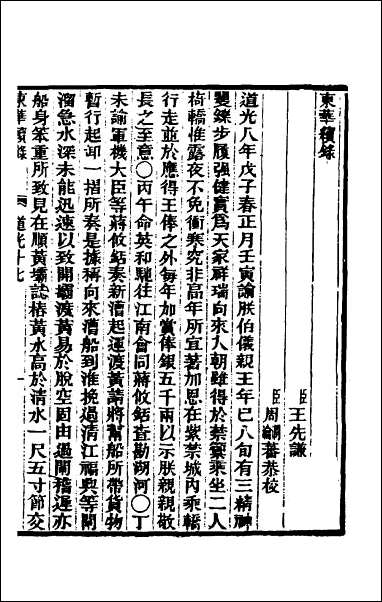 東華續錄
臣王先謙
臣周潤蕃恭校
道光八年戊子春正月壬寅諭朕伯儀親王年已八旬有三精神
矍鑠步履強健實爲天家祥瑞向來入朝雖得於禁禦乘坐二人
椅轎惟露夜不免衝寒究非高年所宜著加恩在紫禁城內乘轎
行走並於應得王俸之外每年加賞俸銀五千兩以示朕親親敬
長之至意〇丙午命英和馳往江南會同蔣攸銛查勘湖河〇丁
未諭軍機大臣等蔣攸銛奏新漕起運渡黃請將幫船所帶貨物
暫行起卸一摺所奏是據稱向來漕船到淮挽過清江福興等閘
溜急水深未能迅速以致開壩渡黃易於脫空固由過閘稽遲亦
船身笨重所致見在順黃壩誌樁黃水高於清水一尺五寸節交
東華續錄 道光十七 一